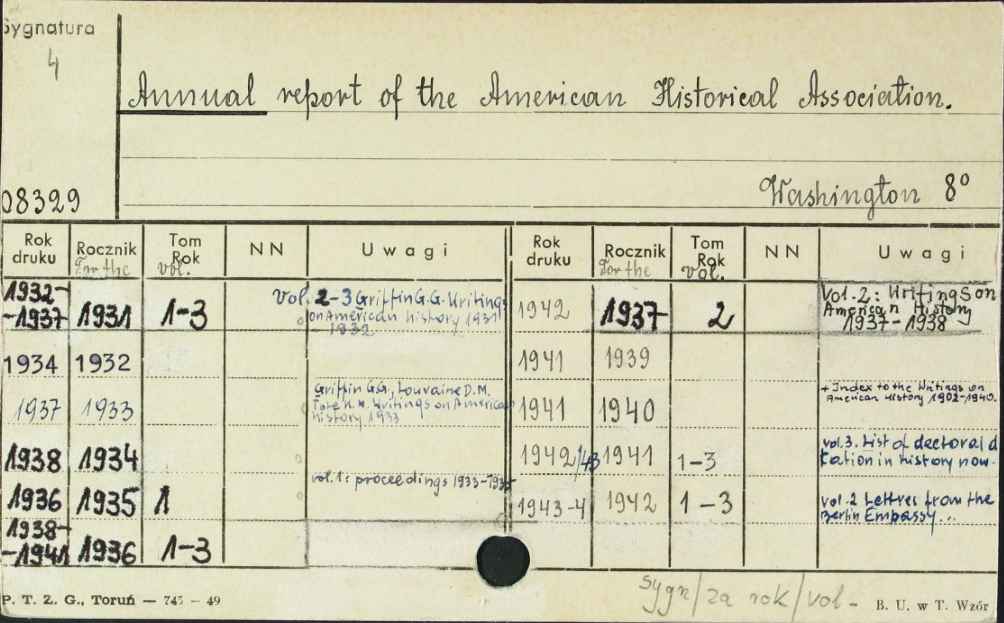 Sygnatura
4
Annual report of the American Historical Association.
Washington 8°
08329
Rok druku Rocznik For the Tom Rok vol. NN Uwagi
1932-1937 1931 1-3 Vol. 2-3 Griffin G.G. Writings on American history 1931-1932
1934 1932
1937 1933 Griffin G.G., Louvaine D.M. Tate K.M. Writings on American history 1933
1938 1934
1936 1935 1 vol. 1: proceedings 1933-1935
1938-1941 1936 1-3
Rok druku Rocznik For the Tom Rok vol. NN Uwagi
1942 1937 2 Vol. 2: Writings on American History 1937-1938
1941 1939
1941 1940 + Index to the Writings on American History 1902-1940.
1942/43 1941 1-3 vol. 3. List of doctoral d tation in history now
1943-4 1942 1-3 vol. 2 Letters from the Berlin Embassy...
sygn/za rok/vol-
P. T. Z. G., Toruń — 745 — 49
B. U. w T. Wzór